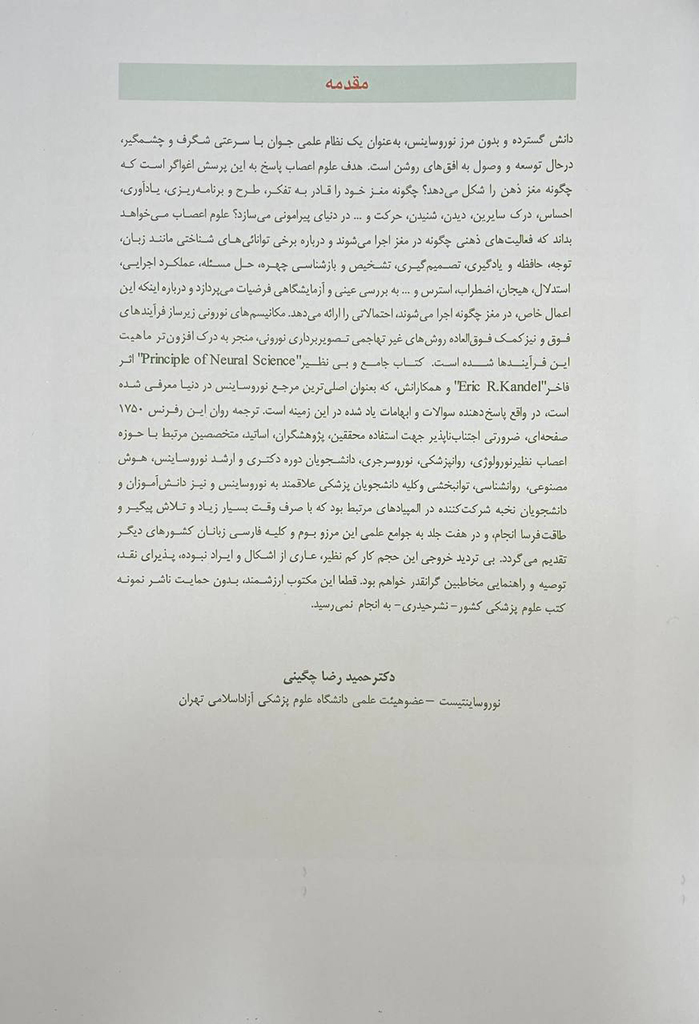 مقدمه
دانش گسترده و بدون مرز نوروساینس، به‌عنوان یک نظام علمی جوان با سرعتی شگرف و چشمگیر،
درحال توسعه و وصول به افق‌های روشن است. هدف علوم اعصاب پاسخ به این پرسش اغواگر است که
چگونه مغز ذهن را شکل می‌دهد؟ چگونه مغز خود را قادر به تفکر، طرح و برنامه‌ریزی، یادآوری،
احساس، درک سایرین، دیدن، شنیدن، حرکت و ... در دنیای پیرامونی می‌سازد؟ علوم اعصاب می‌خواهد
بداند که فعالیت‌های ذهنی چگونه در مغز اجرا می‌شوند و درباره برخی توانائی‌های شناختی مانند زبان،
توجه، حافظه و یادگیری، تصمیم‌گیری، تشخیص و بازشناسی چهره، حل مسئله، عملکرد اجرایی،
استدلال، هیجان، اضطراب، استرس و ... به بررسی عینی و آزمایشگاهی فرضیات می‌پردازد و درباره اینکه این
اعمال خاص، در مغز چگونه اجرا می‌شوند، احتمالاتی را ارائه می‌دهد. مکانیسم‌های نورونی زیرساز فرآیندهای
فوق و نیز کمک فوق‌العاده روش‌های غیر تهاجمی تصویربرداری نورونی، منجر به درک افزون‌تر ماهیت
این فرآیندها شده است. کتاب جامع و بی نظیر"Principle of Neural Science" اثر
فاخر"Eric R.Kandel" و همکارانش، که بعنوان اصلی‌ترین مرجع نوروساینس در دنیا معرفی شده
است، در واقع پاسخ‌دهنده سوالات و ابهامات یاد شده در این زمینه است. ترجمه روان این رفرنس ۱۷۵۰
صفحه‌ای، ضرورتی اجتناب‌ناپذیر جهت استفاده محققین، پژوهشگران، اساتید، متخصصین مرتبط با حوزه
اعصاب نظیرنورولوژی، روانپزشکی، نوروسرجری، دانشجویان دوره دکتری و ارشد نوروساینس، هوش
مصنوعی، روانشناسی، توانبخشی وکلیه دانشجویان پزشکی علاقمند به نوروساینس و نیز دانش‌آموزان و
دانشجویان نخبه شرکت‌کننده در المپیادهای مرتبط بود که با صرف وقت بسیار زیاد و تلاش پیگیر و
طاقت‌فرسا انجام، و در هفت جلد به جوامع علمی این مرزو بوم و کلیه فارسی زبانان کشورهای دیگر
تقدیم می‌گردد. بی تردید خروجی این حجم کار کم نظیر، عاری از اشکال و ایراد نبوده، پذیرای نقد،
توصیه و راهنمایی مخاطبین گرانقدر خواهم بود. قطعا این مکتوب ارزشمند، بدون حمایت ناشر نمونه
کتب علوم پزشکی کشور- نشرحیدری- به انجام نمی‌رسید.
دکترحمید رضا چگینی
نوروساینتیست –عضوهیئت علمی دانشگاه علوم پزشکی آزاداسلامی تهران